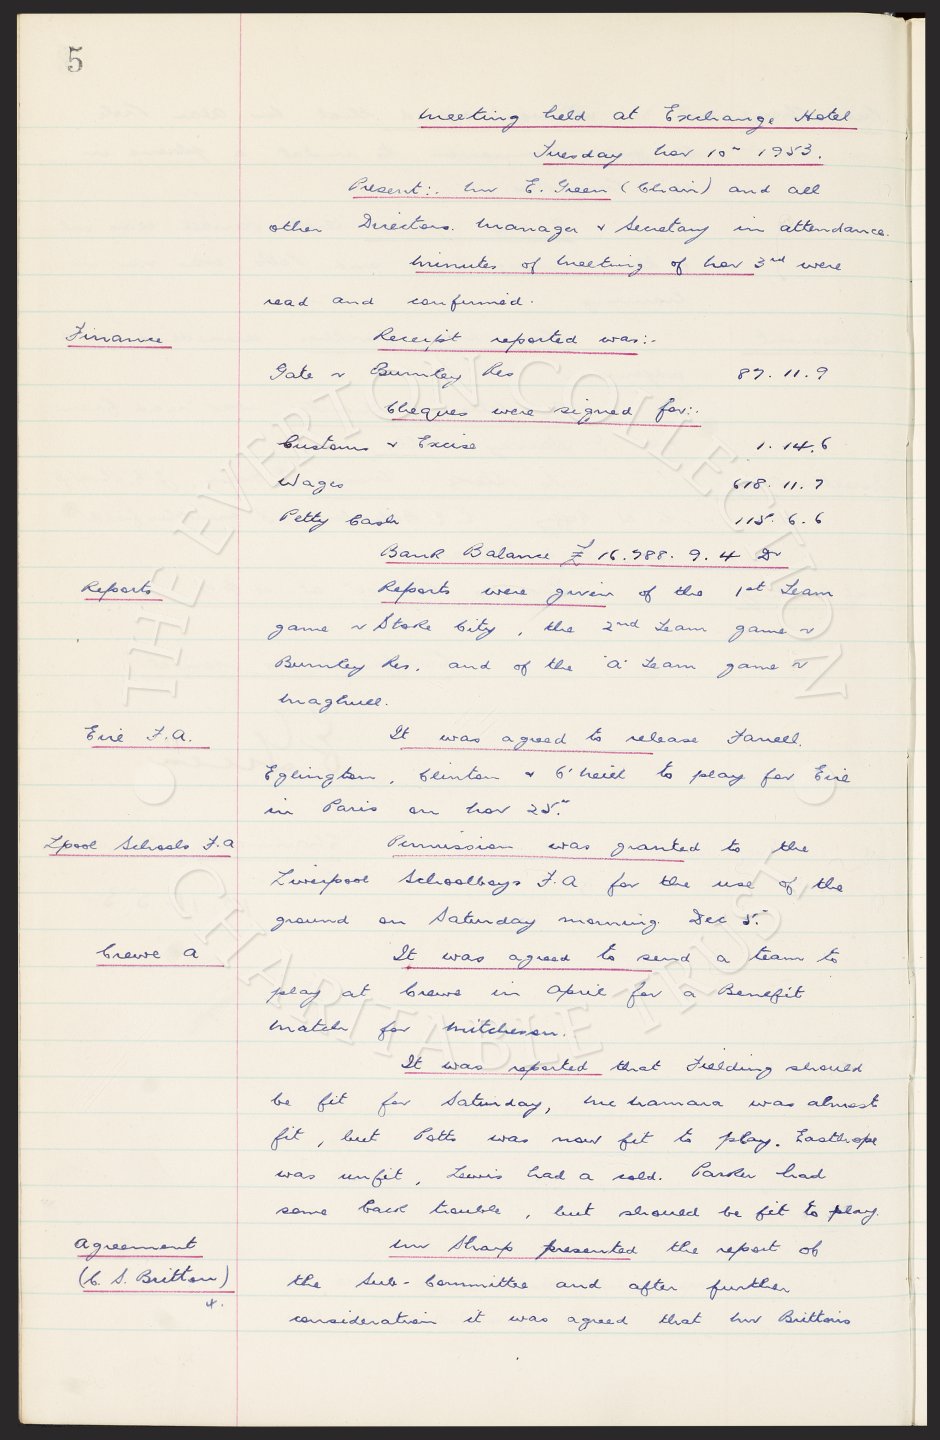 5
Meeting held at Exchange Hotel
Tuesday Nov 10th 1953.
Present:. Mr E. Green (Chair) and all
other Directors. Manager & Secretary in attendance.
Minutes of Meeting of Nov 3rd were
read and confirmed.
Finance
Receipt reported was:-
Gate v Burnley Res 87. 11. 9
Cheques were signed for:.
Customs & Excise 1. 14. 6
Wages 618. 11. 7
Petty Cash 115. 6. 6
Bank Balance £ 16.988. 9. 4 Dr
Reports
Reports were given of the 1st Team
game v Stoke City, the 2nd Team game v
Burnley Res. and of the 'A' Team game v
Maghull.
Eire F.A.
It was agreed to release Farrell.
Eglington, Clinton & O'Neill to play for Eire
in Paris on Nov 25th.
Lpool Schools F.A
Permission was granted to the
Liverpool Schoolboys F.A for the use of the
ground on Saturday morning. Dec 5th
Crewe A
It was agreed to send a team to
play at Crewe in April for a Benefit
Match for Mitcheson.
It was reported that Fielding should
be fit for Saturday, McNamara was almost
fit, but Potts was now fit to play. Easthope
was unfit, Lewis had a cold. Parker had
some back trouble, but should be fit to play.
Agreement
(C. S. Britton)
Mr Sharp presented the report of
the Sub-Committee and after further
consideration it was agreed that Mr Britton's
THE EVERTON COLLECTION
CHARITABLE TRUST